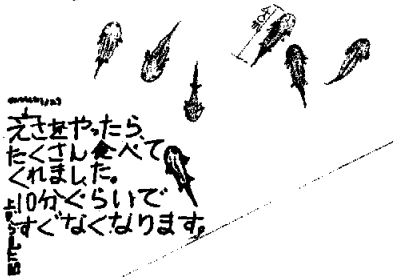 えさをやったら、
たくさん食べて
くれました。
10分ぐらいで
すぐなくなります。
上から見た図